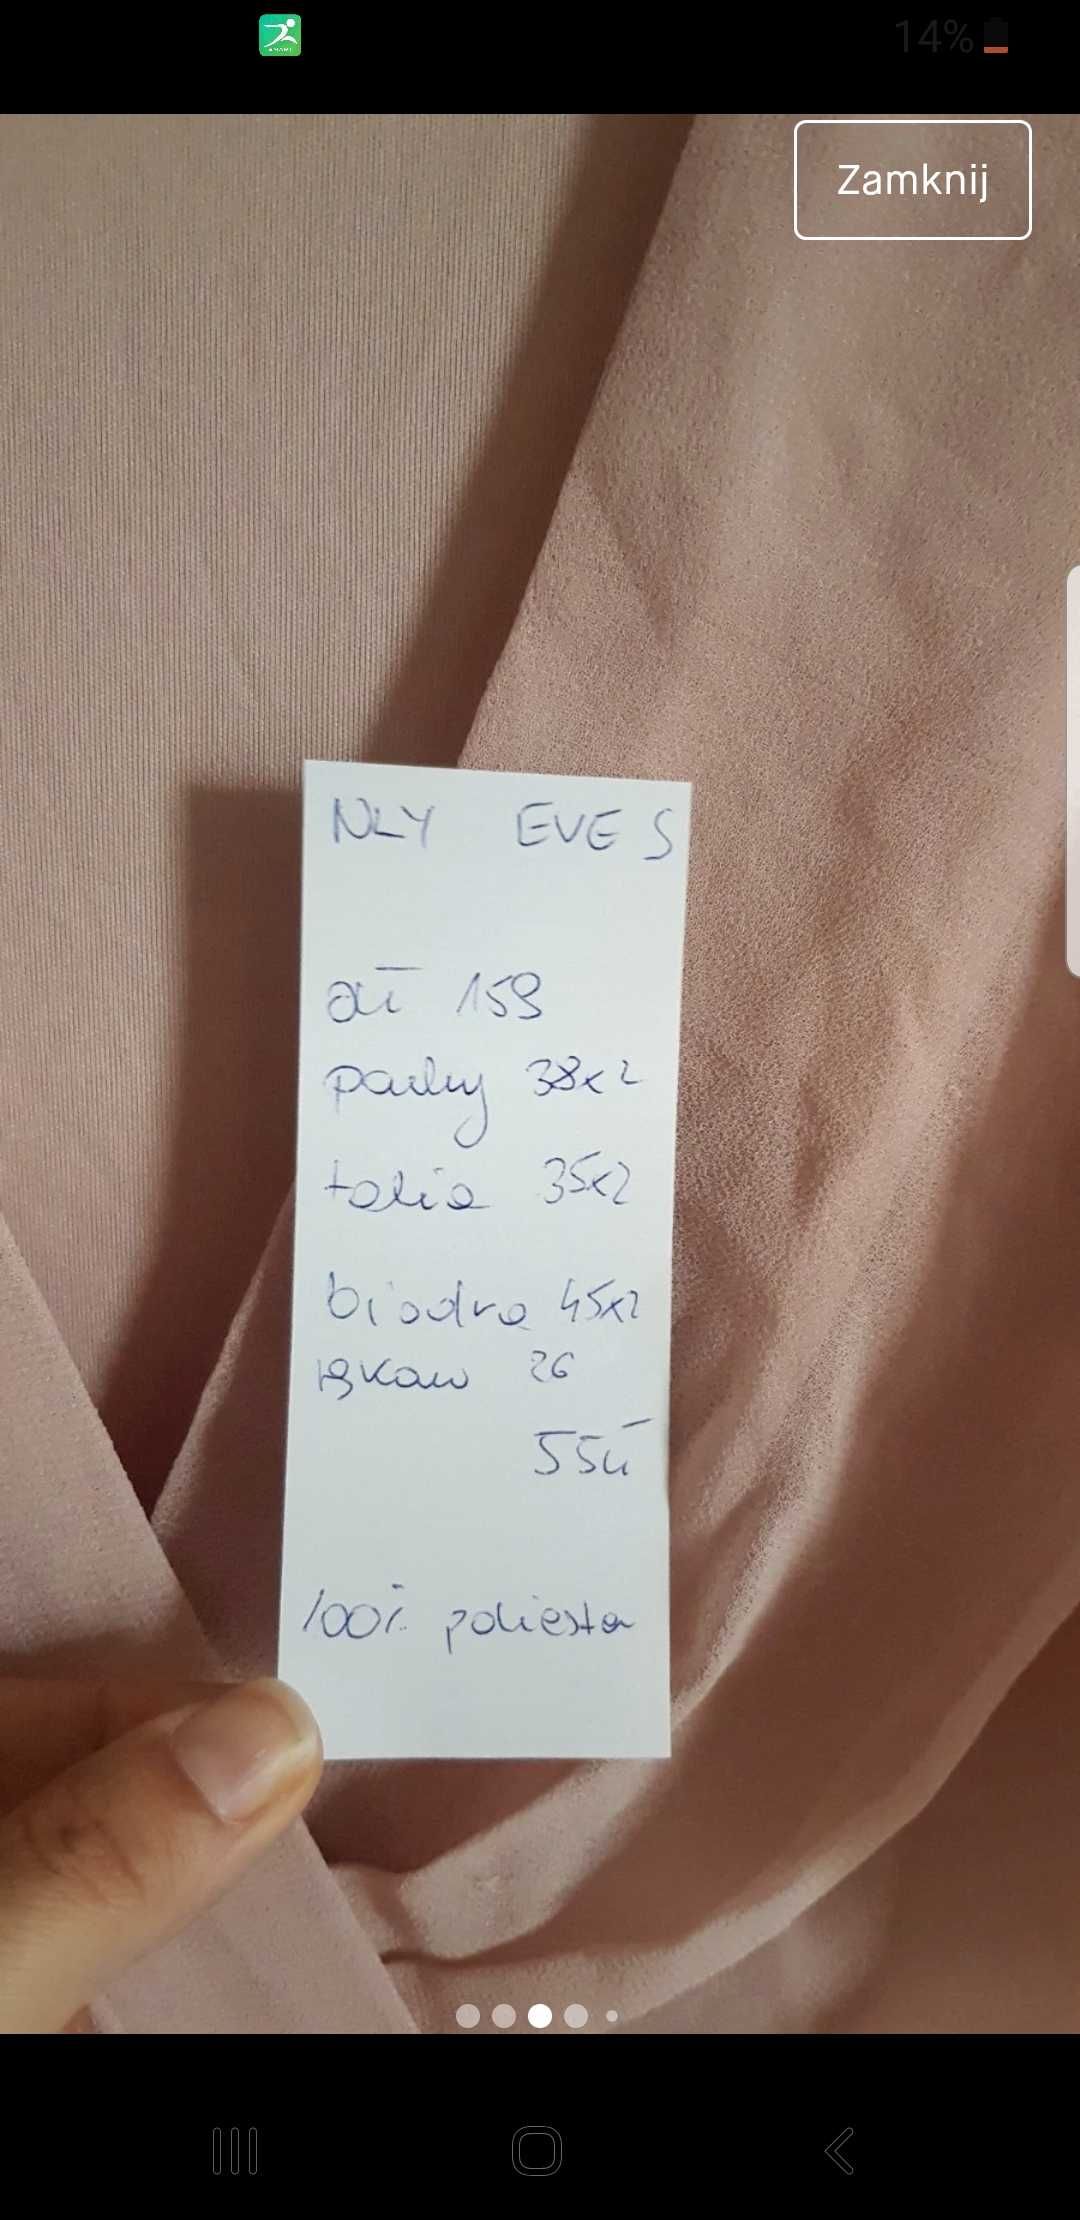 14%
Zamknij
NLY EVE S
dł 159
pachy 38x2
talia 35x2
biodra 45x2
rękaw 26
55zł
100% poliester